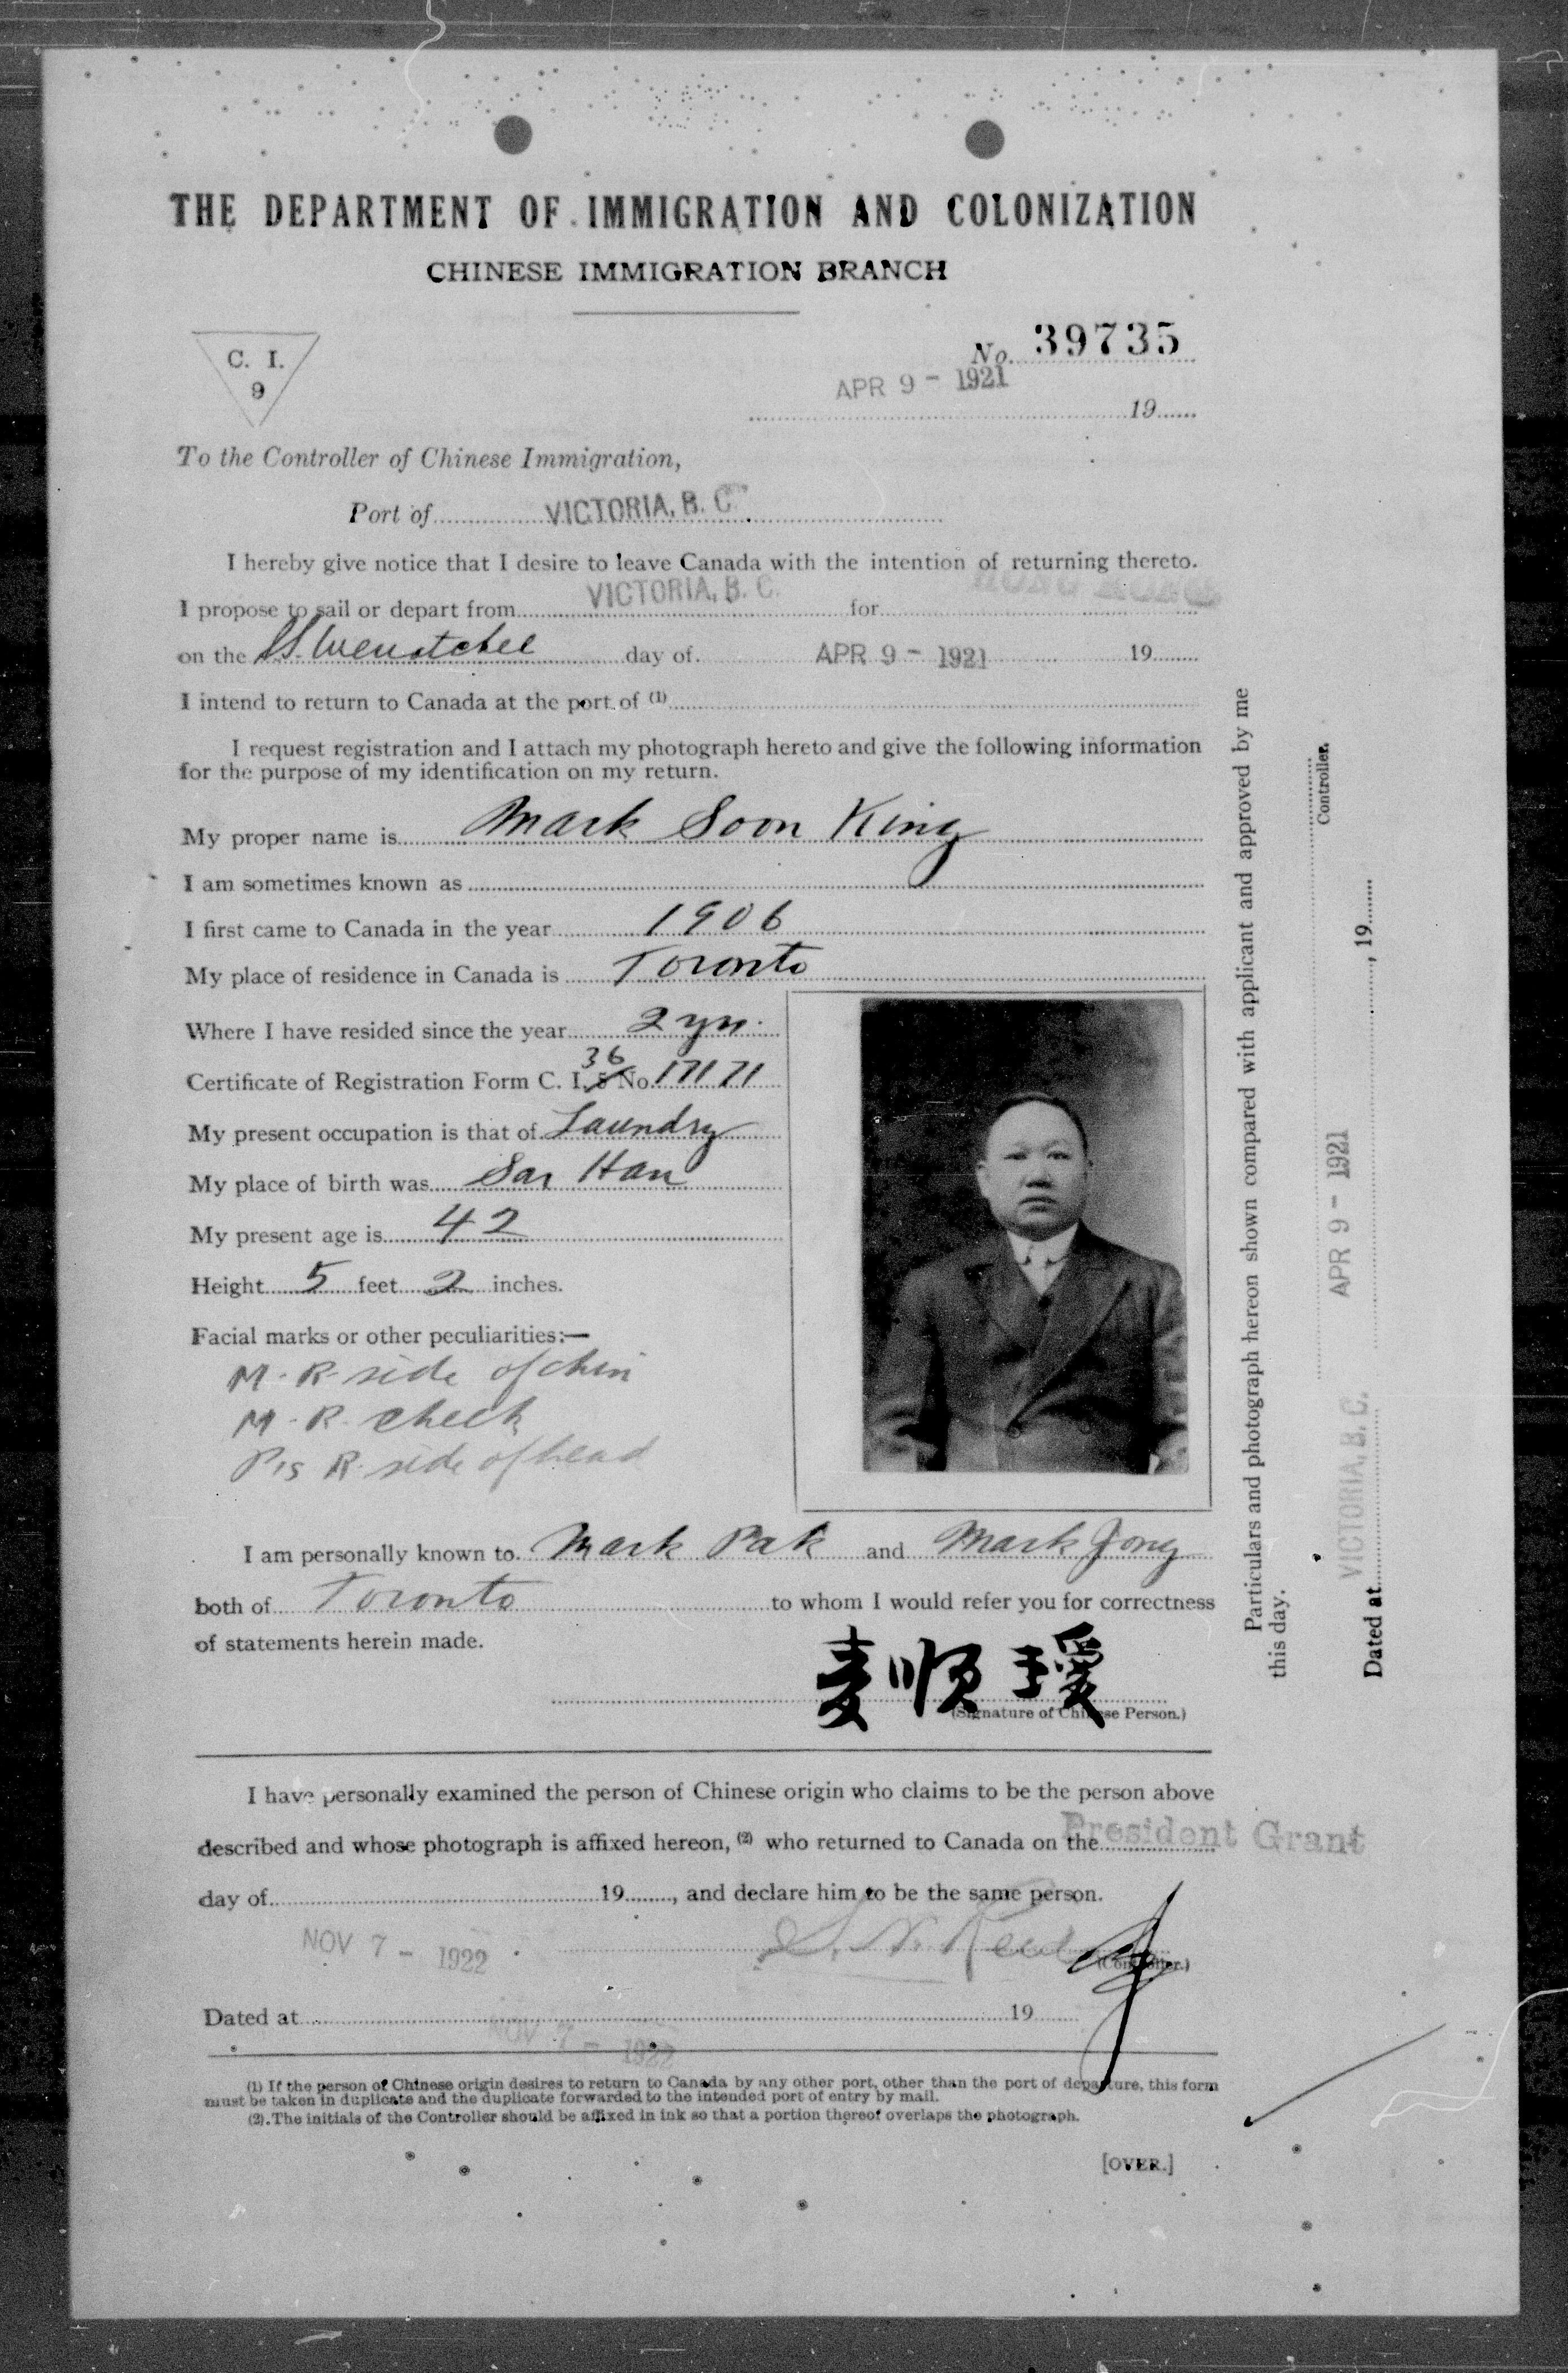 THE DEPARTMENT OF IMMIGRATION AND COLONIZATION
CHINESE IMMIGRATION BRANCH
C. I.
9
No. 39735
APR 9 - 1921
19
To the Controller of Chinese Immigration,
Port of VICTORIA, B. C.
I hereby give notice that I desire to leave Canada with the intention of returning thereto.
I propose to sail or depart from VICTORIA, B. C. for HONG KONG
on the SS. Wenatchee day of APR 9 - 1921 19
I intend to return to Canada at the port of (1)
I request registration and I attach my photograph hereto and give the following information
for the purpose of my identification on my return.
My proper name is Mark Soon King
I am sometimes known as
I first came to Canada in the year 1906
My place of residence in Canada is Toronto
Where I have resided since the year 2 yrs.
36
Certificate of Registration Form C. I. 5 No 17171
My present occupation is that of Laundry
My place of birth was Sar Han
My present age is 42
Height 5 feet 2 inches.
Facial marks or other peculiarities:—
M. R. side of chin
M. R. cheek
Pis R. side of head
I am personally known to Mark Pak and Mark Jong
both of Toronto to whom I would refer you for correctness
of statements herein made.
麦順瑷
(Signature of Chinese Person.)
I have personally examined the person of Chinese origin who claims to be the person above
described and whose photograph is affixed hereon, (2) who returned to Canada on the President Grant
day of 19, and declare him to be the same person.
NOV 7 - 1922
(Controller.)
Dated at 19
NOV 7 - 1922
(1) If the person of Chinese origin desires to return to Canada by any other port, other than the port of departure, this form
must be taken in duplicate and the duplicate forwarded to the intended port of entry by mail.
(2). The initials of the Controller should be affixed in ink so that a portion thereof overlaps the photograph.
[OVER.]
Particulars and photograph hereon shown compared with applicant and approved by me
this day.
APR 9 - 1921
Controller.
Dated at VICTORIA, B. C., 19